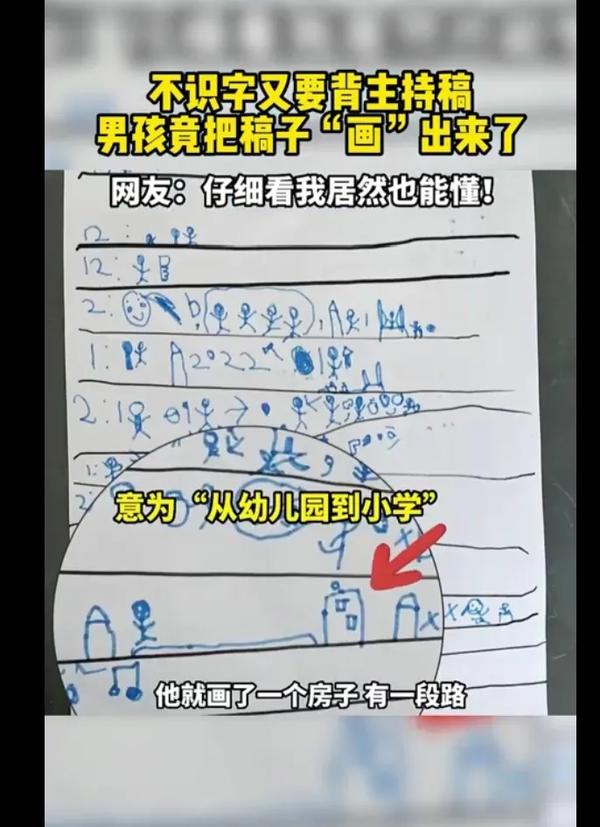 不识字又要背主持稿
男孩竟把稿子“画”出来了
网友：仔细看我居然也能懂！
12：
12：
2：
1： 2022
2：1
1：
2：
意为“从幼儿园到小学”
X X
他就画了一个房子 有一段路